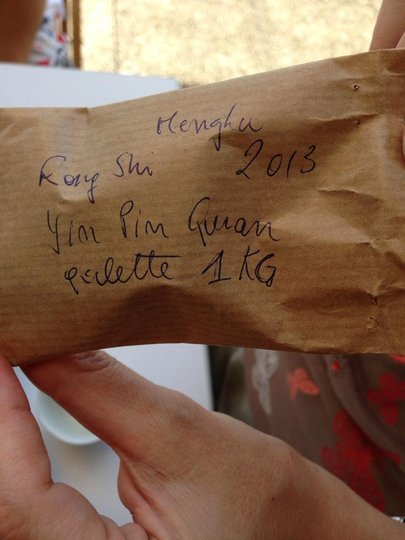 Menghu
Rong Shi 2013
Yin Pin Quan
galette 1 KG